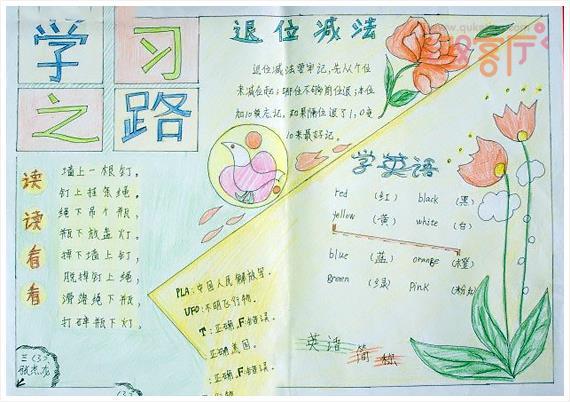 学习之路
退位减法
退位减法要牢记,先从个位
来减位起;哪位不够前位退,本位
加10莫忘记,如果隔位退了1,0变
10来最好记。
读读看看
墙上一根钉,
钉上挂条绳,
绳下吊个瓶,
瓶下放盏灯。
掉下墙上钉,
脱掉钉上绳,
滑落绳下瓶,
打碎瓶下灯,
学英语
red (红) black (黑)
yellow (黄) white (白)
blue (蓝) orange (橙)
Green (绿) Pink (粉
PLA:中国人民解放军。
UFO:不明飞行物。
T:正确,F:错误。
:正确美国。
:正确,F错误
英语
简称
三(3)